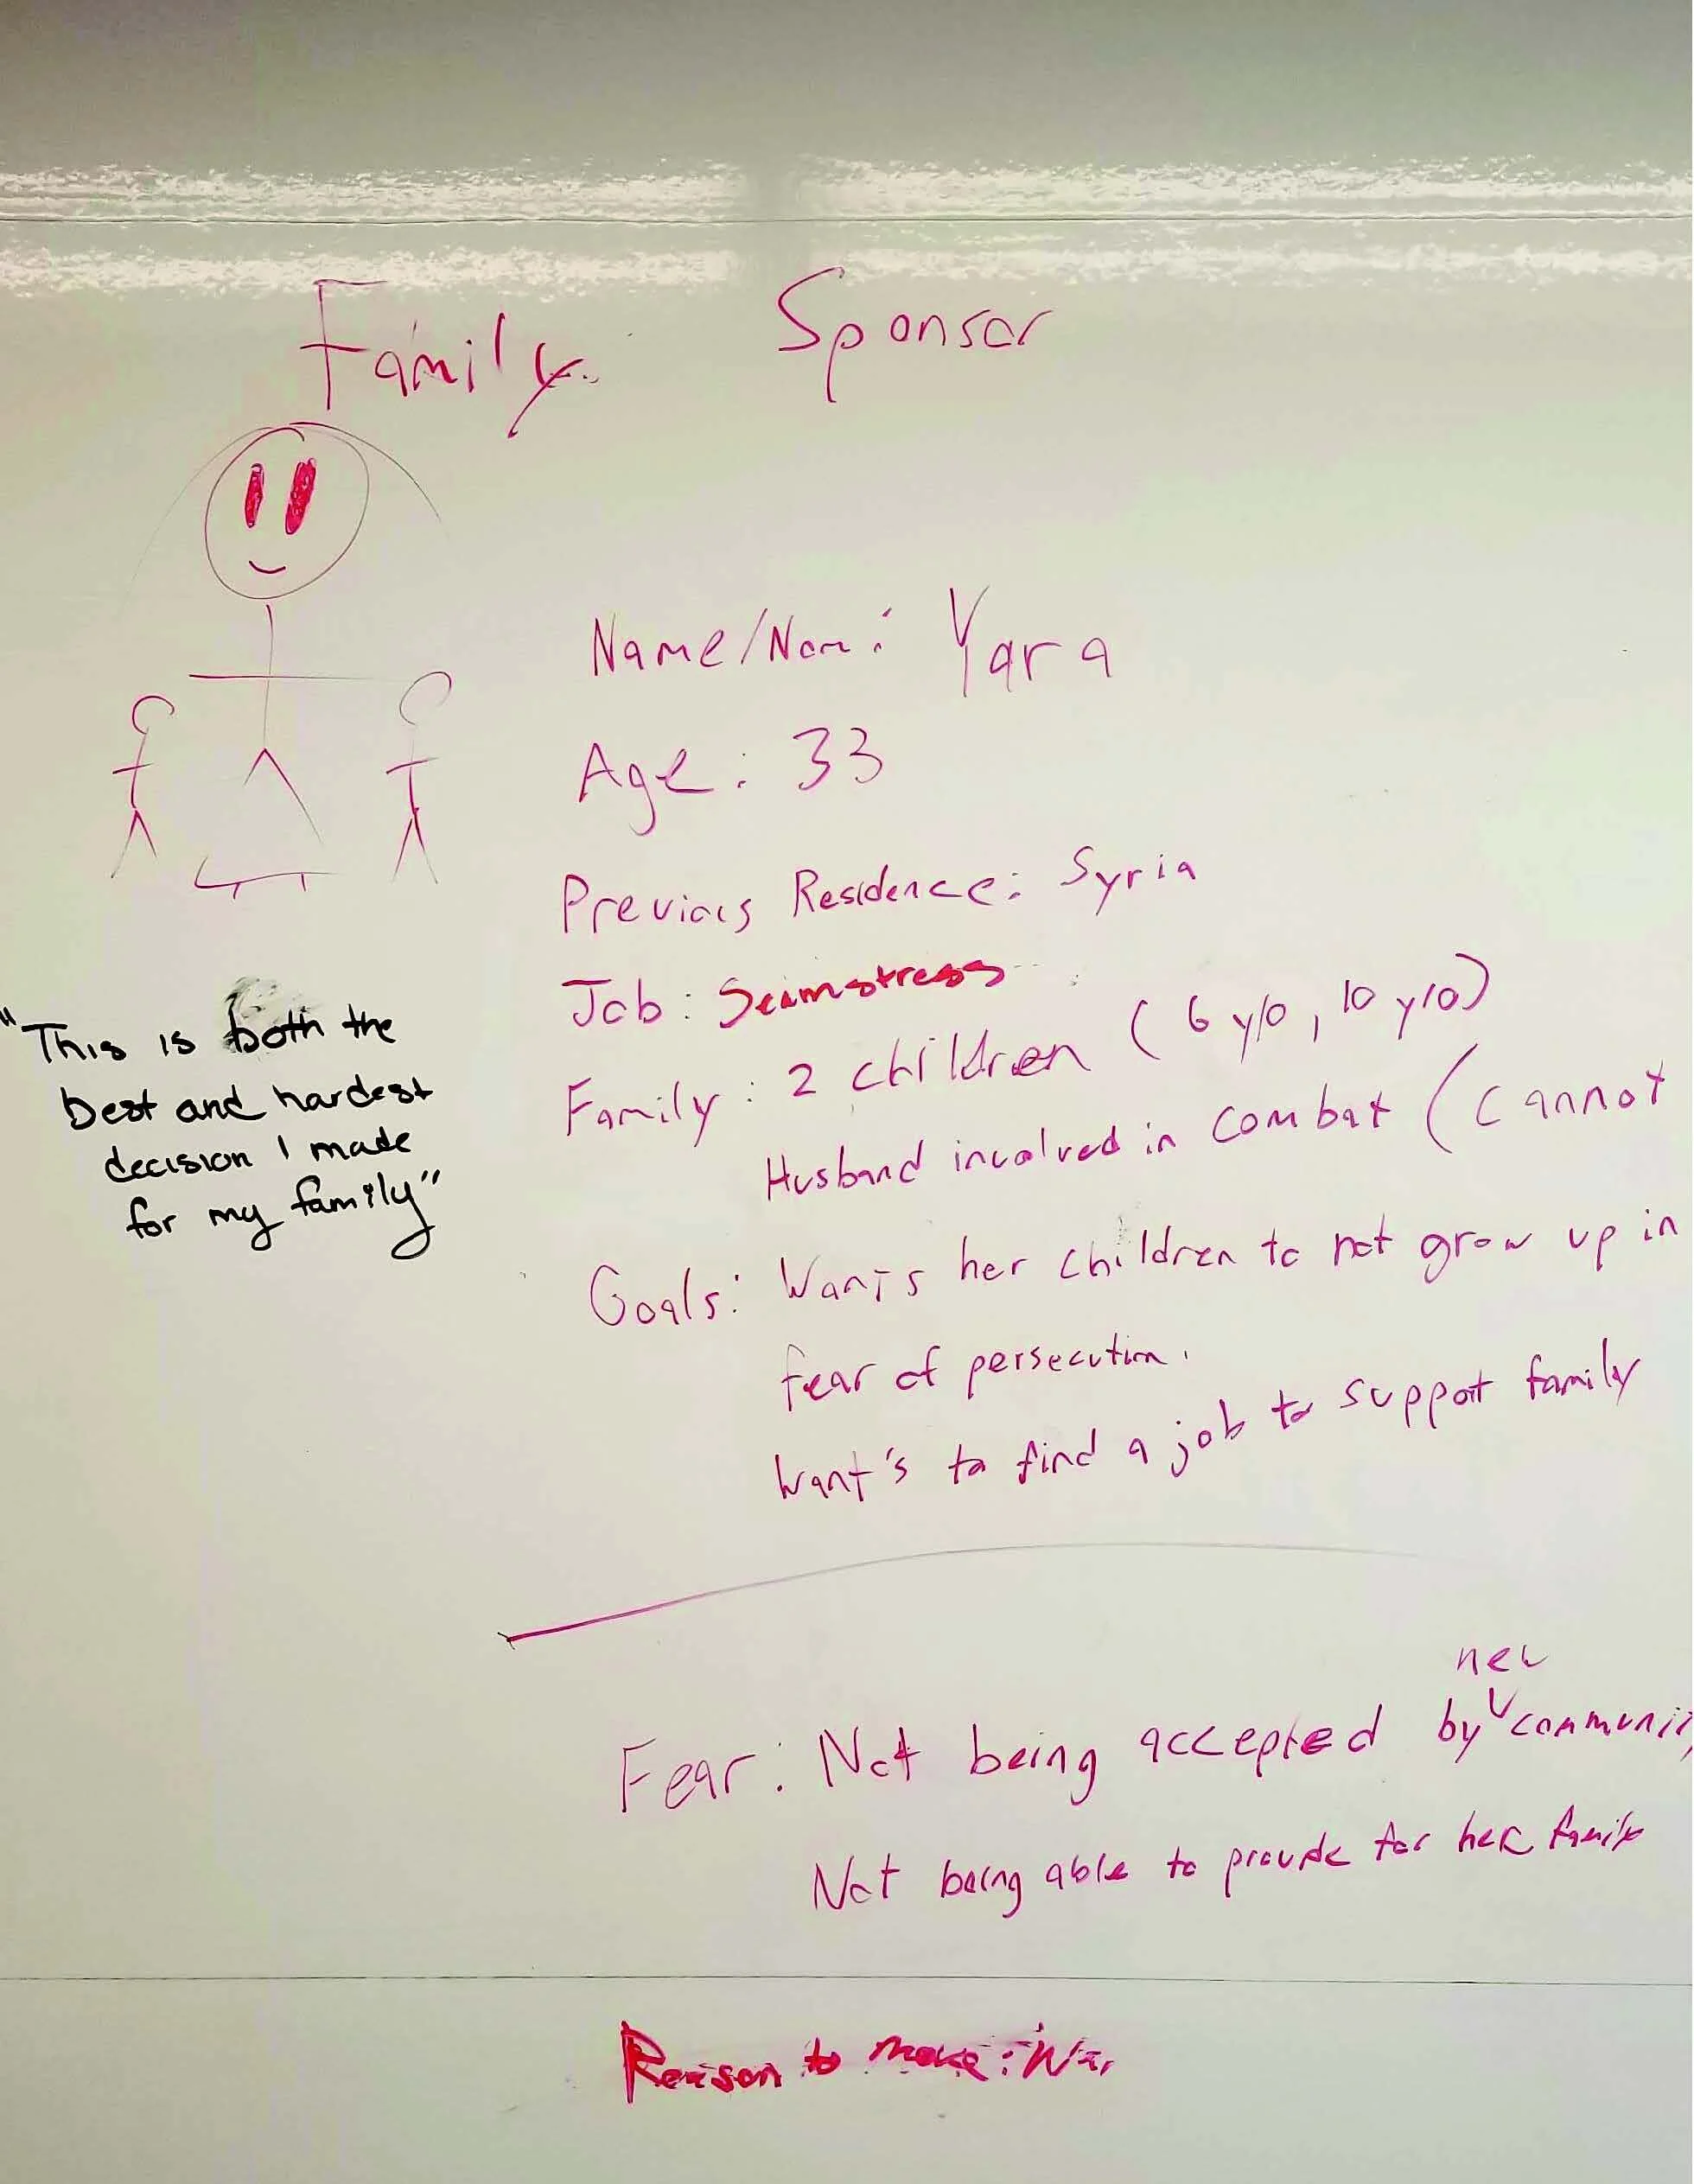 Family
Sponsor
Name/Nom: Yara
Age: 33
Previous Residence: Syria
Job: Seamstress
Family: 2 children (6 y/o, 10 y/o)
Husband involved in combat (cannot
Goals: Wants her children to not grow up in
fear of persecution.
Want's to find a job to support family
"This is both the
best and hardest
decision I made
for my family"
new
Fear: Not being accepted by communi
Not being able to provide for her family
Reason to move: War